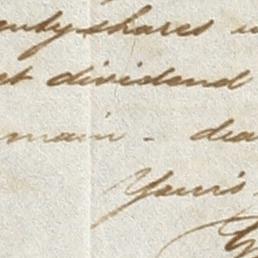 shares
dividend
main - dea
Yours